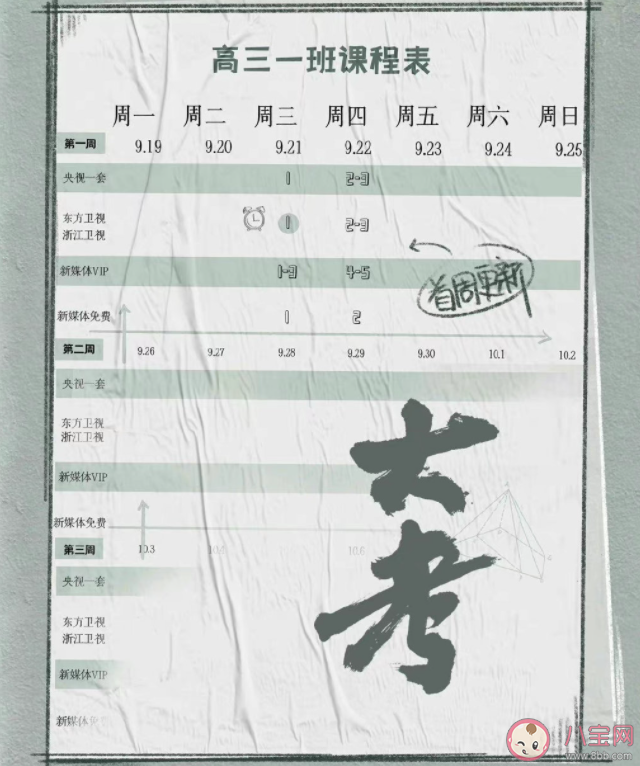 高三一班课程表
周一 周二 周三 周四 周五 周六 周日
第一周 9.19 9.20 9.21 9.22 9.23 9.24 9.25
央视一套 1 2-3
东方卫视
浙江卫视 1 2-3
新媒体VIP 1-3 4-5
首周更新
新媒体免费 1 2
第二周 9.26 9.27 9.28 9.29 9.30 10.1 10.2
央视一套
东方卫视
浙江卫视
新媒体VIP
新媒体免费
大考
第三周 10.3 10.6
央视一套
东方卫视
浙江卫视
新媒体VIP
新媒体免
八宝网
www.8bb.com